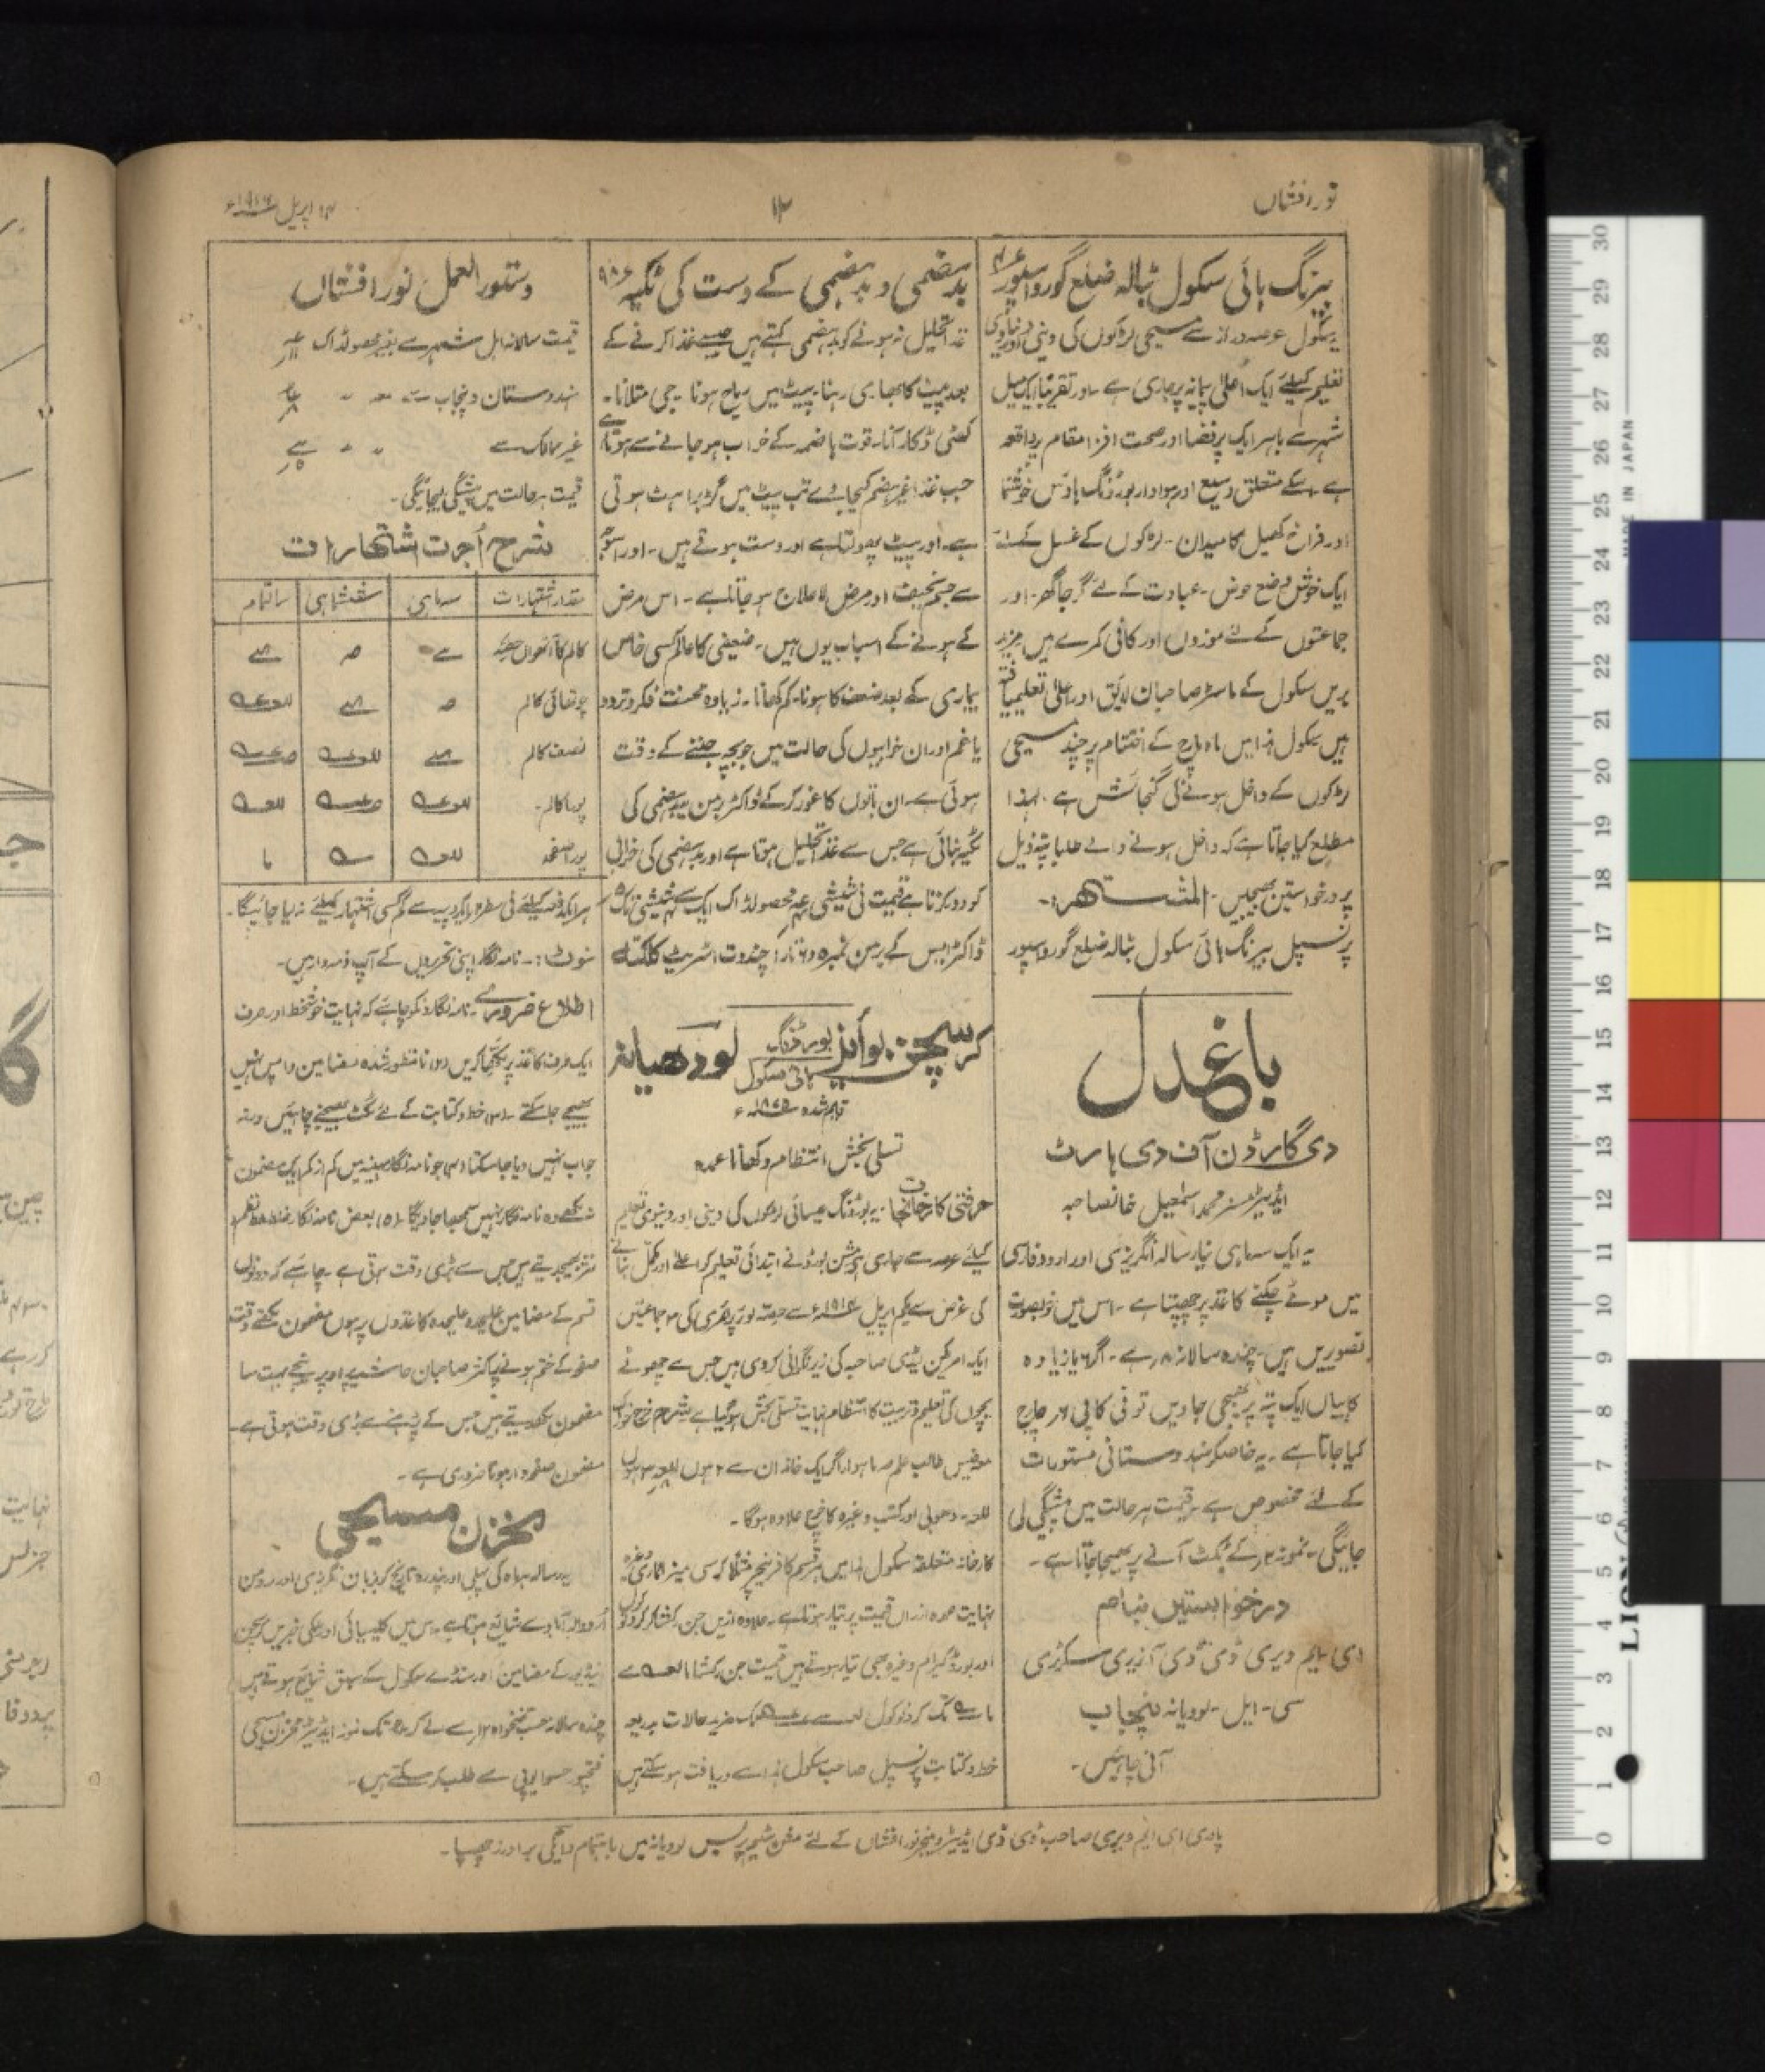 نور افشاں
۱۲
۱۴ اپریل ۱۹۱۶ء
بیرنگ ہائی سکول بٹالہ ضلع گورداسپور
یہ سکول عرصہ دراز سے مسیحی لڑکوں کی دینی اور دنیاوی
تعلیم کیلئے ایک اعلیٰ پیمانہ پر جاری ہے ۔ اور تقریباً ایک میل
شہر سے باہر ایک پر فضا اور صحت افزا مقام پر واقعہ
ہے ۔ اسکے متعلق وسیع اور ہوادار بورڈنگ ہاؤس خوشنما
اور فراخ کھیل کا میدان ۔ لڑکوں کے غسل کے لئے
ایک خوش وضع حوض ۔ عبادت کے لئے گرجا گھر ۔ اور
جماعتوں کے لئے موزوں اور کافی کمرے ہیں مزید
بریں سکول کے ماسٹر صاحبان لائق اور اعلیٰ تعلیمیافتہ
ہیں سکول ہذا میں ماہ مارچ کے اختتام پر چند مسیحی
لڑکوں کے داخل ہونے کی گنجائش ہے ۔ لہذا
مطلع کیا جاتا ہے کہ داخل ہونے والے طلبا پتہ ذیل
پر درخواستیں بھیجیں ۔ المشتـــہر:۔
پرنسپل بیرنگ ہائی سکول بٹالہ ضلع گورداسپور
باغ دل
دی گارڈن آف دی ہارٹ
ایڈیٹر مسز محمد اسمٰعیل خانصاحبہ
یہ ایک سہ ماہی نیا رسالہ انگریزی اور اردو فارسی
میں موٹے چکنے کاغذ پر چھپتا ہے ۔ اس میں خوبصورت
تصویریں ہیں ۔ چندہ سالانہ ۸ر ہے ۔ اگر ۶ یا زیادہ
کاپیاں ایک پتہ پر بھیجی جاویں تو فی کاپی ۶ر چارج
کیا جاتا ہے ۔ یہ خاصکر ہندوستانی مستورات
کے لئے مخصوص ہے ۔ قیمت ہر حالت میں پیشگی لی
جائیگی ۔ نمونہ ۲ر کے ٹکٹ آنے پر بھیجا جاتا ہے ۔
درخواستیں بنام
ای ایم ویری ڈی ڈی آنریری سکرٹری
سی ۔ ایل ۔ لودیانہ پنجاب
آنی چاہئیں ۔
بدہضمی و بدہضمی کے دست کی ٹکیہ
غذا تحلیل نہ ہونے کو بدہضمی کہتے ہیں جیسے غذا کرنے کے
بعد پیٹ کا بھاری رہنا ۔ پیٹ میں ریاح ہونا ۔ جی متلانا ۔
کھٹی ڈکار آنا ۔ قوت ہاضمہ کے خراب ہو جانے سے ہوتا ہے
جب غذا غیر ہضم کیجاوے تب پیٹ میں گڑبڑاہٹ ہوتی
ہے ۔ اور پیٹ پھولتا ہے اور دست ہوتے ہیں ۔ اور اسی
سے جسم نحیف اور مرض لاعلاج ہو جاتا ہے ۔ اس مرض
کے ہونے کے اسباب یوں ہیں ۔ ضعیفی کا عالم کسی خاص
بیماری کے بعد ضعف کا ہونا ۔ کم کھانا ۔ زیادہ محنت فکر و تردد
یا غم اور ان خرابیوں کی حالت میں جو بچہ جننے کے وقت
ہوتی ہے ۔ ان باتوں کا غور کر کے ڈاکٹر برمن نے بدہضمی کی
ٹکیہ بنائی ہے جس سے غذا تحلیل ہوتا ہے اور بدہضمی کی خرابی
کو دور کرتا ہے قیمت فی شیشی محصولڈاک ایک سے شیشی تک
ڈاکٹر ایس کے برمن نمبر ۵ و ۶ تاراچند دت اسٹریٹ کلکتہ
کرسچن بوائز بورڈنگ ہائی سکول لودھیانہ
قایم شدہ ۱۸۷۵ء
تسلی بخش انتظام و کھانا عمدہ
حرفتی کارخانجات ۔ یہ بورڈنگ عیسائی لڑکوں کی دینی اور دنیوی تعلیم
کیلئے عرصہ سے جاری ہے مشن بورڈ نے ابتدائی تعلیم کو اعلیٰ اور مکمل بنانے
کی غرض سے یکم اپریل ۱۹۱۴ء سے حصہ لوئر پرائمری کی ۳ جماعتیں
ایک امریکن لیڈی صاحبہ کی زیر نگرانی کر دی ہیں جس سے چھوٹے
بچوں کی تعلیم و تربیت کا انتظام نہایت تسلی بخش ہو گیا ہے شرح خرچ خوراک
معہ فیس طالب علم ماہوار اگر ایک خاندان سے ۲ ہوں
دھوبی اور کتب وغیرہ کا خرچ علاوہ ہوگا ۔
کارخانہ متعلقہ سکول ہذا میں ہر قسم کا فرنیچر مثلاً کرسی میز الماری وغیرہ
نہایت عمدہ ارزاں قیمت پر تیار ہوتا ہے ۔ علاوہ ازیں جن رکشا
اور بورڈ کیرام وغیرہ بھی تیار ہوتے ہیں قیمت جن رکشا
تک مزید حالات بذریعہ
خط و کتابت پرنسپل صاحب سکول ہذا سے دریافت ہو سکتے ہیں
دستور العمل نور افشاں
قیمت سالانہ اہل شہر سے بغیر محصولڈاک
ہندوستان و پنجاب سے
غیر ممالک سے
قیمت ہر حالت میں پیشگی لیجائیگی ۔
شرح اُجرت اشتہارات
مقدار اشتہارات سہ ماہی ششماہی سالتمام
کالم کا آٹھواں حصہ
چوتھائی کالم
نصف کالم
پورا کالم
پورا صفحہ
ہر ایک دفعہ کیلئے فی سطر ایک روپیہ سے کم کسی اشتہار کیلئے نہ لیا جائیگا ۔
نوٹ:۔ نامہ نگار اپنی تحریروں کے آپ ذمہ وار ہیں ۔
اطلاع ضروری ۔ نامہ نگار کو چاہئے کہ نہایت خوشخط اور صرف
ایک طرف کاغذ پر لکھا کریں (۲) نا منظور شدہ مضامین واپس نہیں
بھیجے جا سکتے (۳) خط و کتابت کے لئے ٹکٹ بھیجنے چاہئیں ورنہ
جواب نہیں دیا جا سکتا (۴) جو نامہ نگار مہینہ میں کم از کم ایک مضمون
نہ لکھے وہ نامہ نگار نہیں سمجھا جاویگا (۵) بعض نامہ نگار نظم
نثر بھیجدیتے ہیں جس سے بڑی دقت ہوتی ہے ۔ چاہئے کہ دونوں
قسم کے مضامین علیحدہ علیحدہ کاغذوں پر ہوں مضمون لکھتے وقت
صفحہ کے ختم ہونے پر اکثر صاحبان حاشیہ پر اوپر نیچے بہت سا
مضمون لکھدیتے ہیں جس کے پڑھنے سے بڑی دقت ہوتی ہے ۔
مضمون صفحہ وار ہونا ضروری ہے ۔
مخزن مسیحی
یہ رسالہ ہر ماہ کی پہلی اور پندرہ تاریخ کو بزبان ناگری اور رومن
اُردو الہ آباد سے شایع ہوتا ہے ۔ اس میں کلیسیائی اور ملکی خبریں
کے مضامین اور سنڈے سکول کے سبق شایع ہوتے ہیں
چندہ سالانہ حسب تنخواہ ۱۲ر سے لے کر تک نمونہ ایڈیٹر مخزن مسیحی
فتحپور یوپی سے طلب کر سکتے ہیں ۔
پادری ای ایم ویری صاحب ڈی ڈی ایڈیٹر و مینجر نور افشاں کے لئے مشن سٹیم پریس لودیانہ میں باہتمام وائلی برادرز چھپا ۔
MADE IN JAPAN
30
29
28
27
26
25
24
23
22
21
20
19
18
17
16
15
14
13
12
11
10
9
8
7
6
5
4
3
2
1
0
LION